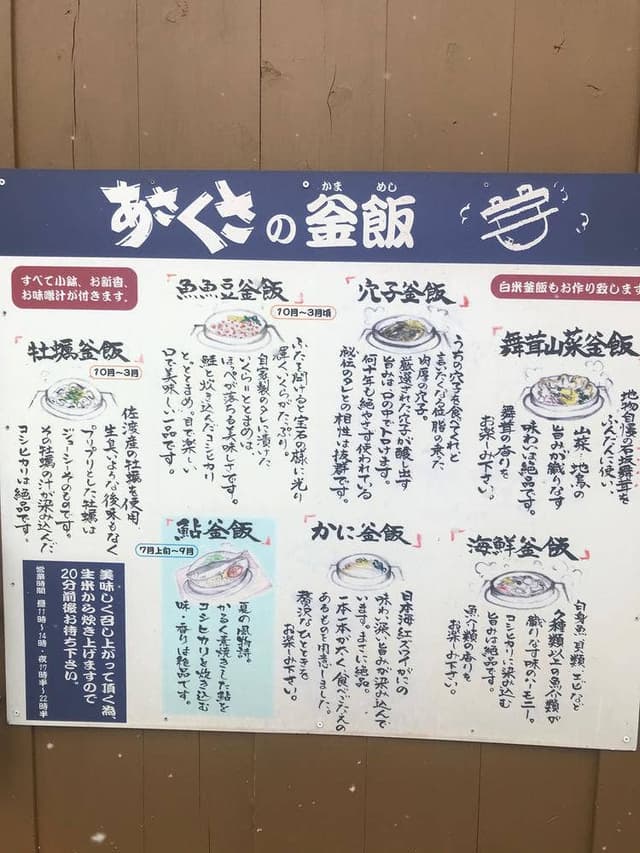 かま めし
あさくさの釜飯
すべて小鉢、お新香、
お味噌汁が付きます。
白米釜飯もお作り致します
舞茸山菜釜飯
地物自慢の石坂舞茸を
ふんだんに使い、
山菜・地鳥の
旨みが織りなす
味わいは絶品です。
舞茸の香りを
お楽しみ下さい。
穴子釜飯
うちの穴子を食べてくれと
言いたくなる位脂の乗った
肉厚の穴子。
厳選された穴子が醸し出す
旨みは口の中でトロけます。
何十年も絶やさず使われている
秘伝のタレとの相性は抜群です。
魚魚豆釜飯
10月〜3月頃
ふたを開けると宝石の様に光り
輝くいくらがたっぷり。
自家製のタレに漬けた
いくら=ととまめは、
ほっぺが落ちる美味しさです。
鮭と炊き込んだコシヒカリ
と、ととまめ。目で楽しい
口で美味しい一品です。
牡蠣釜飯
10月〜3月
佐渡産の牡蠣を使用
生臭いような後味もなく
プリプリとした牡蠣は
ジューシーそのものです。
その牡蠣の汁が染み込んだ
コシヒカリは絶品です。
海鮮釜飯
白身魚、貝類、エビなど
9種類以上の魚介類が
織りなす味のハーモニー。
コシヒカリに染み込む
旨みは絶品です。
魚介類の香りを
お楽しみ下さい。
かに釜飯
日本海紅ズワイがにの
味わい深い旨みが染み込んで
います。まさに絶品。
一本一本が太く、食べごたえの
あるものを用意しました。
贅沢なひとときを
お楽しみ下さい。
鮎釜飯
7月上旬〜9月
夏の風物詩
かるく素焼きした鮎を
コシヒカリと炊き込む
味・香りは絶品です。
美味しく召し上がって頂く為、
生米から炊き上げますので
20分前後お待ち下さい。
営業時間 昼11時〜14時・夜17時半〜22時半